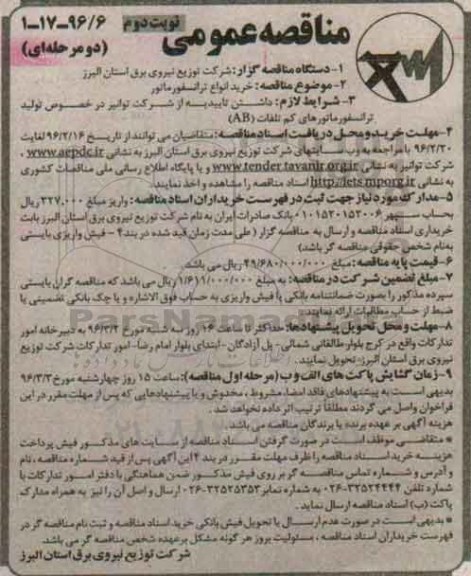 نوبت دوم
۱-۱۷-۹۶/۶
(دو مرحله‌ای)
مناقصه عمومی
۱- دستگاه مناقصه گزار: شرکت توزیع نیروی برق استان البرز
۲- موضوع مناقصه: خرید انواع ترانسفورماتور
۳- شرایط لازم: داشتن تاییدیه از شرکت توانیر در خصوص تولید
ترانسفورماتورهای کم تلفات (AB)
۴- مهلت خرید و محل دریافت اسناد مناقصه: متقاضیان می توانند از تاریخ ۹۶/۲/۱۶ لغایت
۹۶/۲/۲۰ با مراجعه به وب سایتهای شرکت توزیع نیروی برق استان البرز به نشانی www.aepdc.ir،
شرکت توانیر به نشانی www.tender.tavanir.org.ir و یا پایگاه اطلاع رسانی ملی مناقصات کشوری
به نشانی http://iets.mporg.ir اسناد مناقصه را مشاهده و اخذ نمایند.
۵- مدارک مورد نیاز جهت ثبت در فهرست خریداران اسناد مناقصه: واریز مبلغ ۳۲۷.۰۰۰ ریال
بحساب سپهر ۰۱۰۱۵۲۰۱۵۲۰۰۶ بانک صادرات ایران به نام شرکت توزیع نیروی برق استان البرز بابت
خریداری اسناد مناقصه و ارسال به مناقصه گزار (طی مدت زمان قید شده در بند ۴ - فیش واریزی بایستی
به نام شخص حقوقی مناقصه گر باشد)
۶- قیمت پایه مناقصه: مبلغ ۴۹/۶۸۰/۰۰۰/۰۰۰ ریال می باشد.
۷- مبلغ تضمین شرکت در مناقصه: به مبلغ ۱/۶۱۱/۰۰۰/۰۰۰ ریال می باشد که مناقصه گران بایستی
سپرده مذکور را بصورت ضمانتنامه بانکی یا فیش واریزی به حساب فوق الاشاره و یا چک بانکی تضمینی یا
ضبط از حساب مطالبات ارائه نمایند.
۸- مهلت و محل تحویل پیشنهادها: حداکثر تا ساعت ۱۶ روز سه شنبه مورخ ۹۶/۳/۲ به دبیرخانه امور
تدارکات واقع در کرج بلوار طالقانی شمالی - پل آزادگان - ابتدای بلوار امام رضا - امور تدارکات شرکت توزیع
نیروی برق استان البرز - تحویل نمایند.
۹- زمان گشایش پاکت های الف و ب (مرحله اول مناقصه): ساعت ۱۵ روز چهارشنبه مورخ ۹۶/۳/۳
بدیهی است به پیشنهادهای فاقد امضا، مشروط، مخدوش و یا پیشنهادهایی که پس از مهلت مقرر در این
فراخوان واصل می گردند مطلقاً ترتیب اثر داده نخواهد شد.
هزینه آگهی بر عهده برنده یا برندگان مناقصه می باشد.
* متقاضی موظف است در صورت گرفتن اسناد مناقصه از سایت های مذکور فیش پرداخت
هزینه خرید اسناد مناقصه را ظرف مهلت مقرر در بند ۴ این آگهی پس از قید شماره مناقصه، نام
و آدرس و شماره تماس مناقصه گر بر روی فیش مذکور ضمن هماهنگی با دفتر امور تدارکات با
شماره تلفن ۰۲۶-۳۲۵۲۴۴۴۴ به شماره نمابر ۰۲۶-۳۲۵۲۵۳۵۳ ارسال و اصل آن را نیز به همراه مدارک
پاکت (ب) اسناد مناقصه ارسال نماید.
* بدیهی است در صورت عدم ارسال یا تحویل فیش بانکی خرید اسناد مناقصه و ثبت نام مناقصه گر در
فهرست خریداران اسناد مناقصه، مسئولیت بروز هر گونه مشکل بر عهده شخص مناقصه گر می باشد.
شرکت توزیع نیروی برق استان البرز